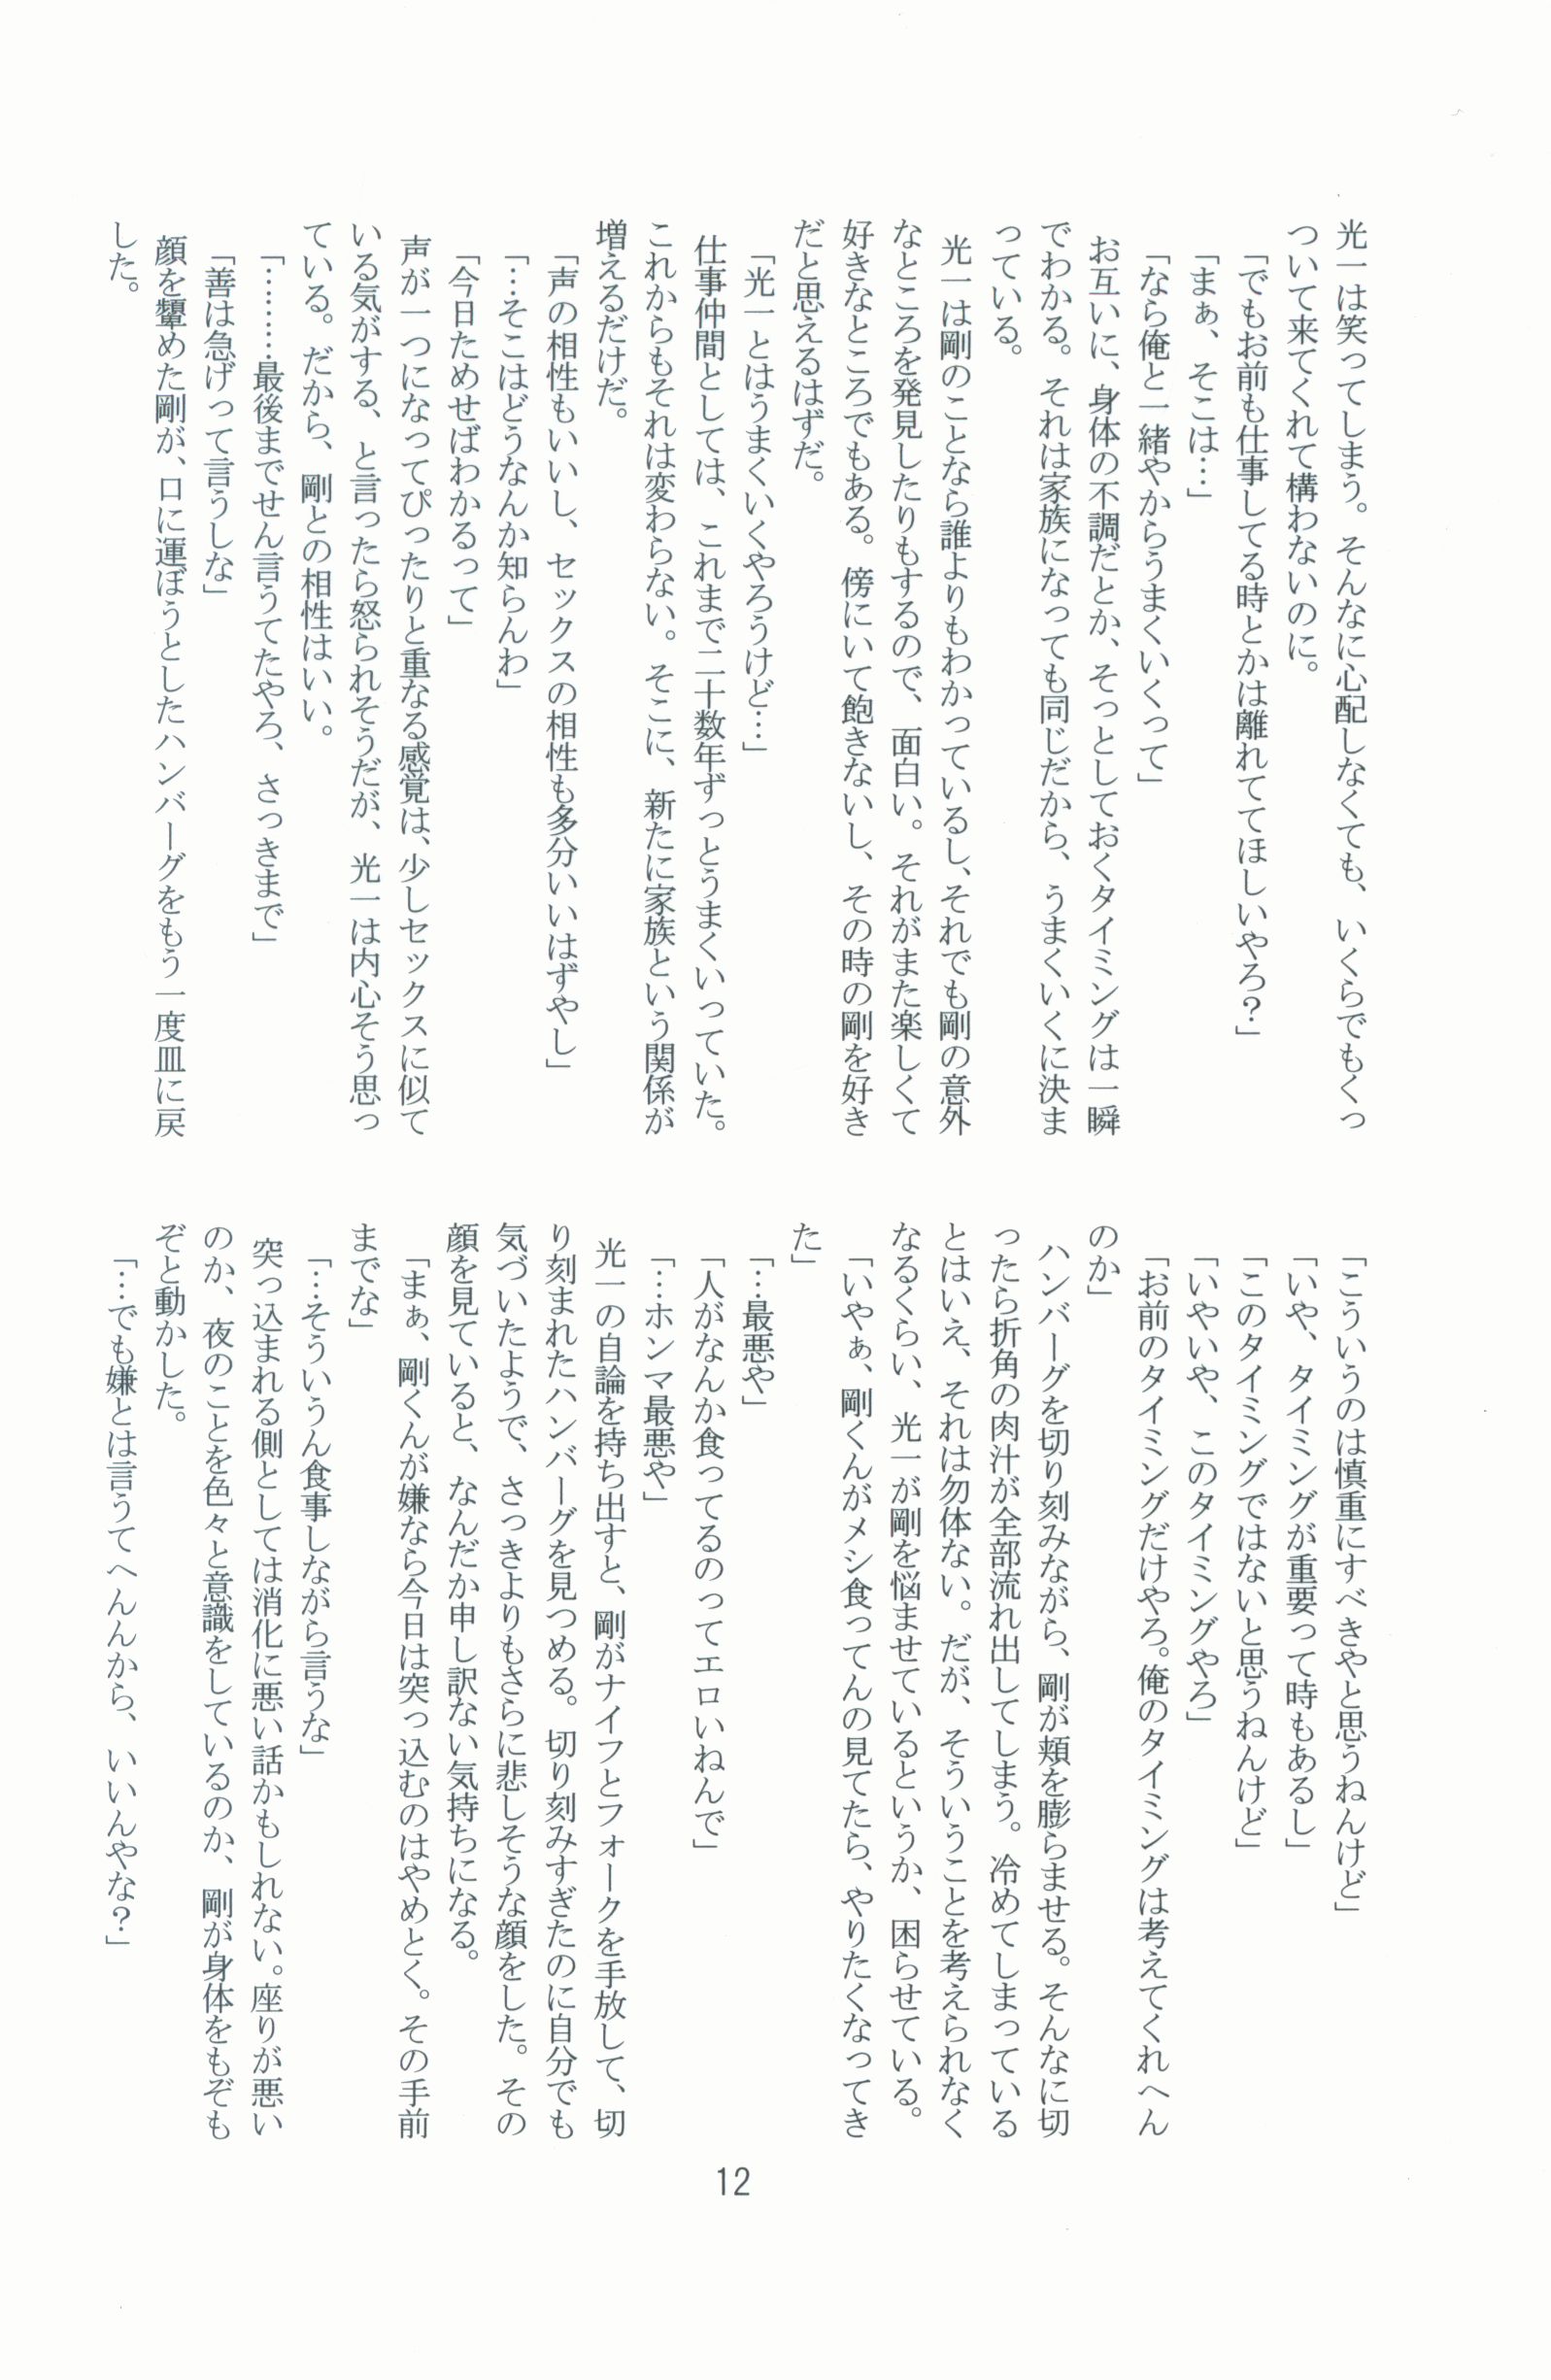 光一は笑ってしまう。そんなに心配しなくても、いくらでもくっ
ついて来てくれて構わないのに。
「でもお前も仕事してる時とかは離れててほしいやろ？」
「まぁ、そこは…」
「なら俺と一緒やからうまくいくって」
お互いに、身体の不調だとか、そっとしておくタイミングは一瞬
でわかる。それは家族になっても同じだから、うまくいくに決ま
っている。
光一は剛のことなら誰よりもわかっているし、それでも剛の意外
なところを発見したりもするので、面白い。それがまた楽しくて
好きなところでもある。傍にいて飽きないし、その時の剛を好き
だと思えるはずだ。
「光一とはうまくいくやろうけど…」
仕事仲間としては、これまで二十数年ずっとうまくいっていた。
これからもそれは変わらない。そこに、新たに家族という関係が
増えるだけだ。
「声の相性もいいし、セックスの相性も多分いいはずやし」
「…そこはどうなんか知らんわ」
「今日ためせばわかるって」
声が一つになってぴったりと重なる感覚は、少しセックスに似て
いる気がする、と言ったら怒られそうだが、光一は内心そう思っ
ている。だから、剛との相性はいい。
「………最後までせん言うてたやろ、さっきまで」
「善は急げって言うしな」
顔を顰めた剛が、口に運ぼうとしたハンバーグをもう一度皿に戻
した。
「こういうのは慎重にすべきやと思うねんけど」
「いや、タイミングが重要って時もあるし」
「このタイミングではないと思うねんけど」
「いやいや、このタイミングやろ」
「お前のタイミングだけやろ。俺のタイミングは考えてくれへん
のか」
ハンバーグを切り刻みながら、剛が頬を膨らませる。そんなに切
ったら折角の肉汁が全部流れ出してしまう。冷めてしまっている
とはいえ、それは勿体ない。だが、そういうことを考えられなく
なるくらい、光一が剛を悩ませているというか、困らせている。
「いやぁ、剛くんがメシ食ってんの見てたら、やりたくなってき
た」
「…最悪や」
「人がなんか食ってるのってエロいねんで」
「…ホンマ最悪や」
光一の自論を持ち出すと、剛がナイフとフォークを手放して、切
り刻まれたハンバーグを見つめる。切り刻みすぎたのに自分でも
気づいたようで、さっきよりもさらに悲しそうな顔をした。その
顔を見ていると、なんだか申し訳ない気持ちになる。
「まぁ、剛くんが嫌なら今日は突っ込むのはやめとく。その手前
までな」
「…そういうん食事しながら言うな」
突っ込まれる側としては消化に悪い話かもしれない。座りが悪い
のか、夜のことを色々と意識をしているのか、剛が身体をもぞも
ぞと動かした。
「…でも嫌とは言うてへんんから、いいんやな？」
12